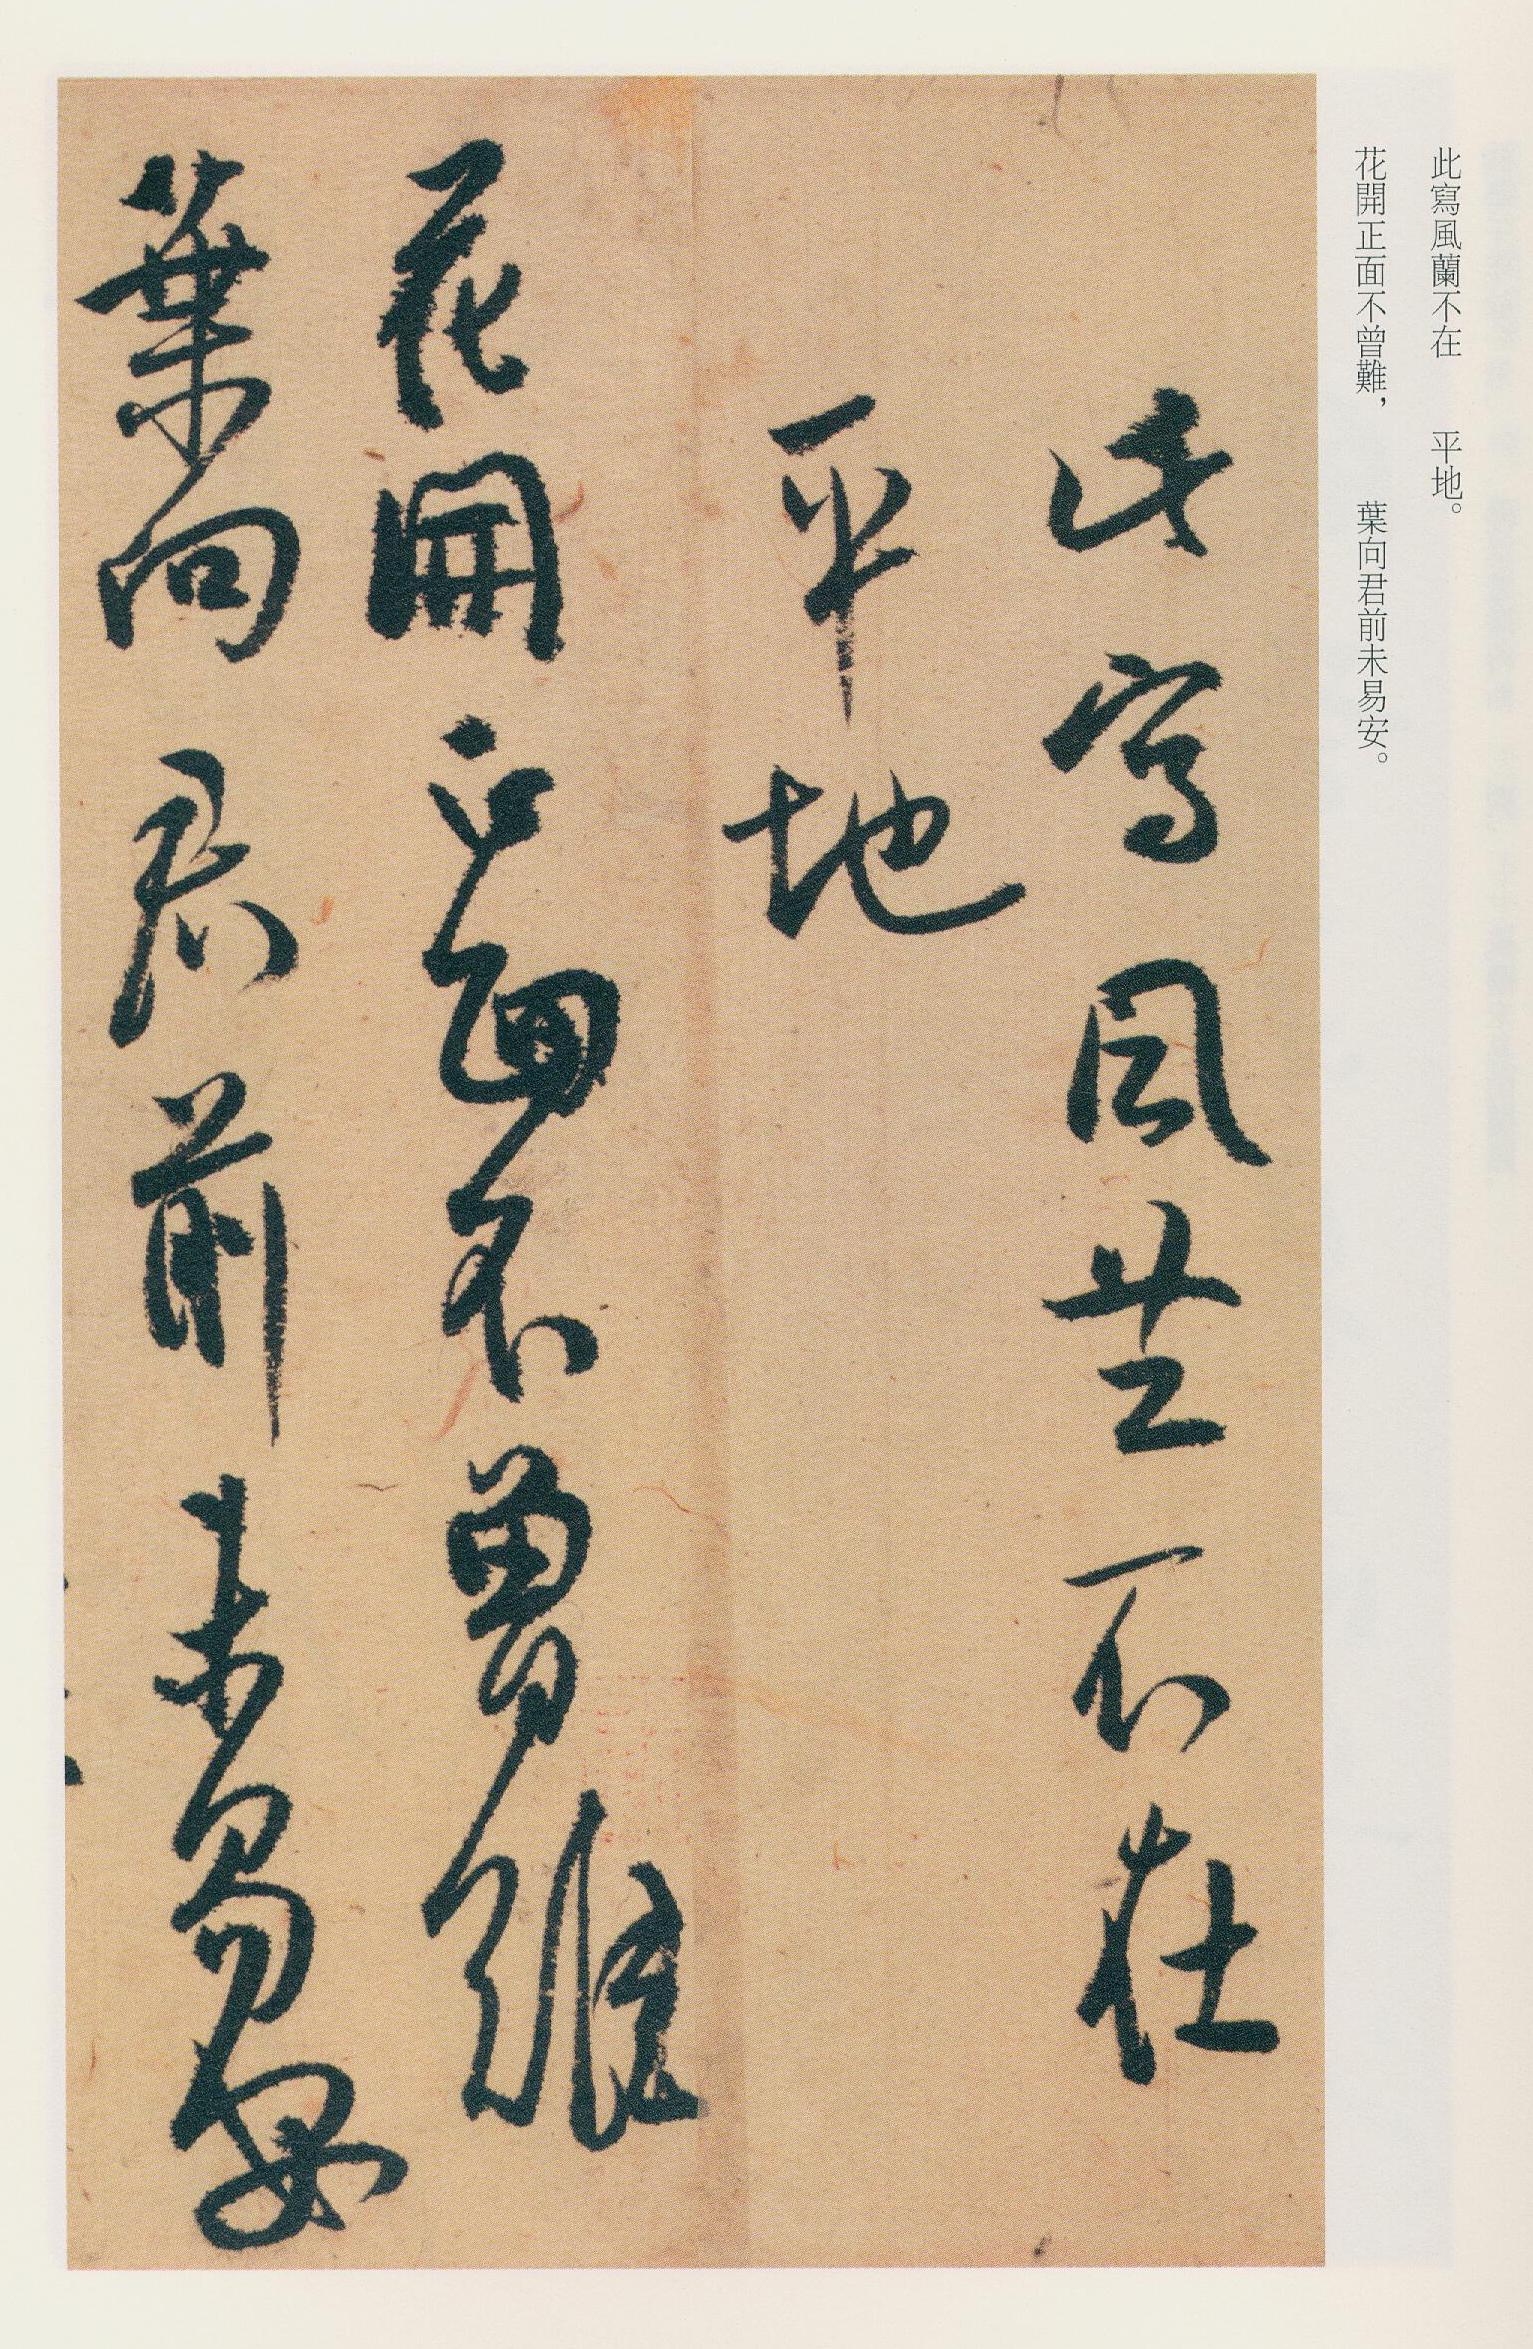 此寫風蘭不在　平地。
花開正面不曾難，　葉向君前未易安。
此寫風蘭不在
平地
花開正面不曾難
葉向君前未易安